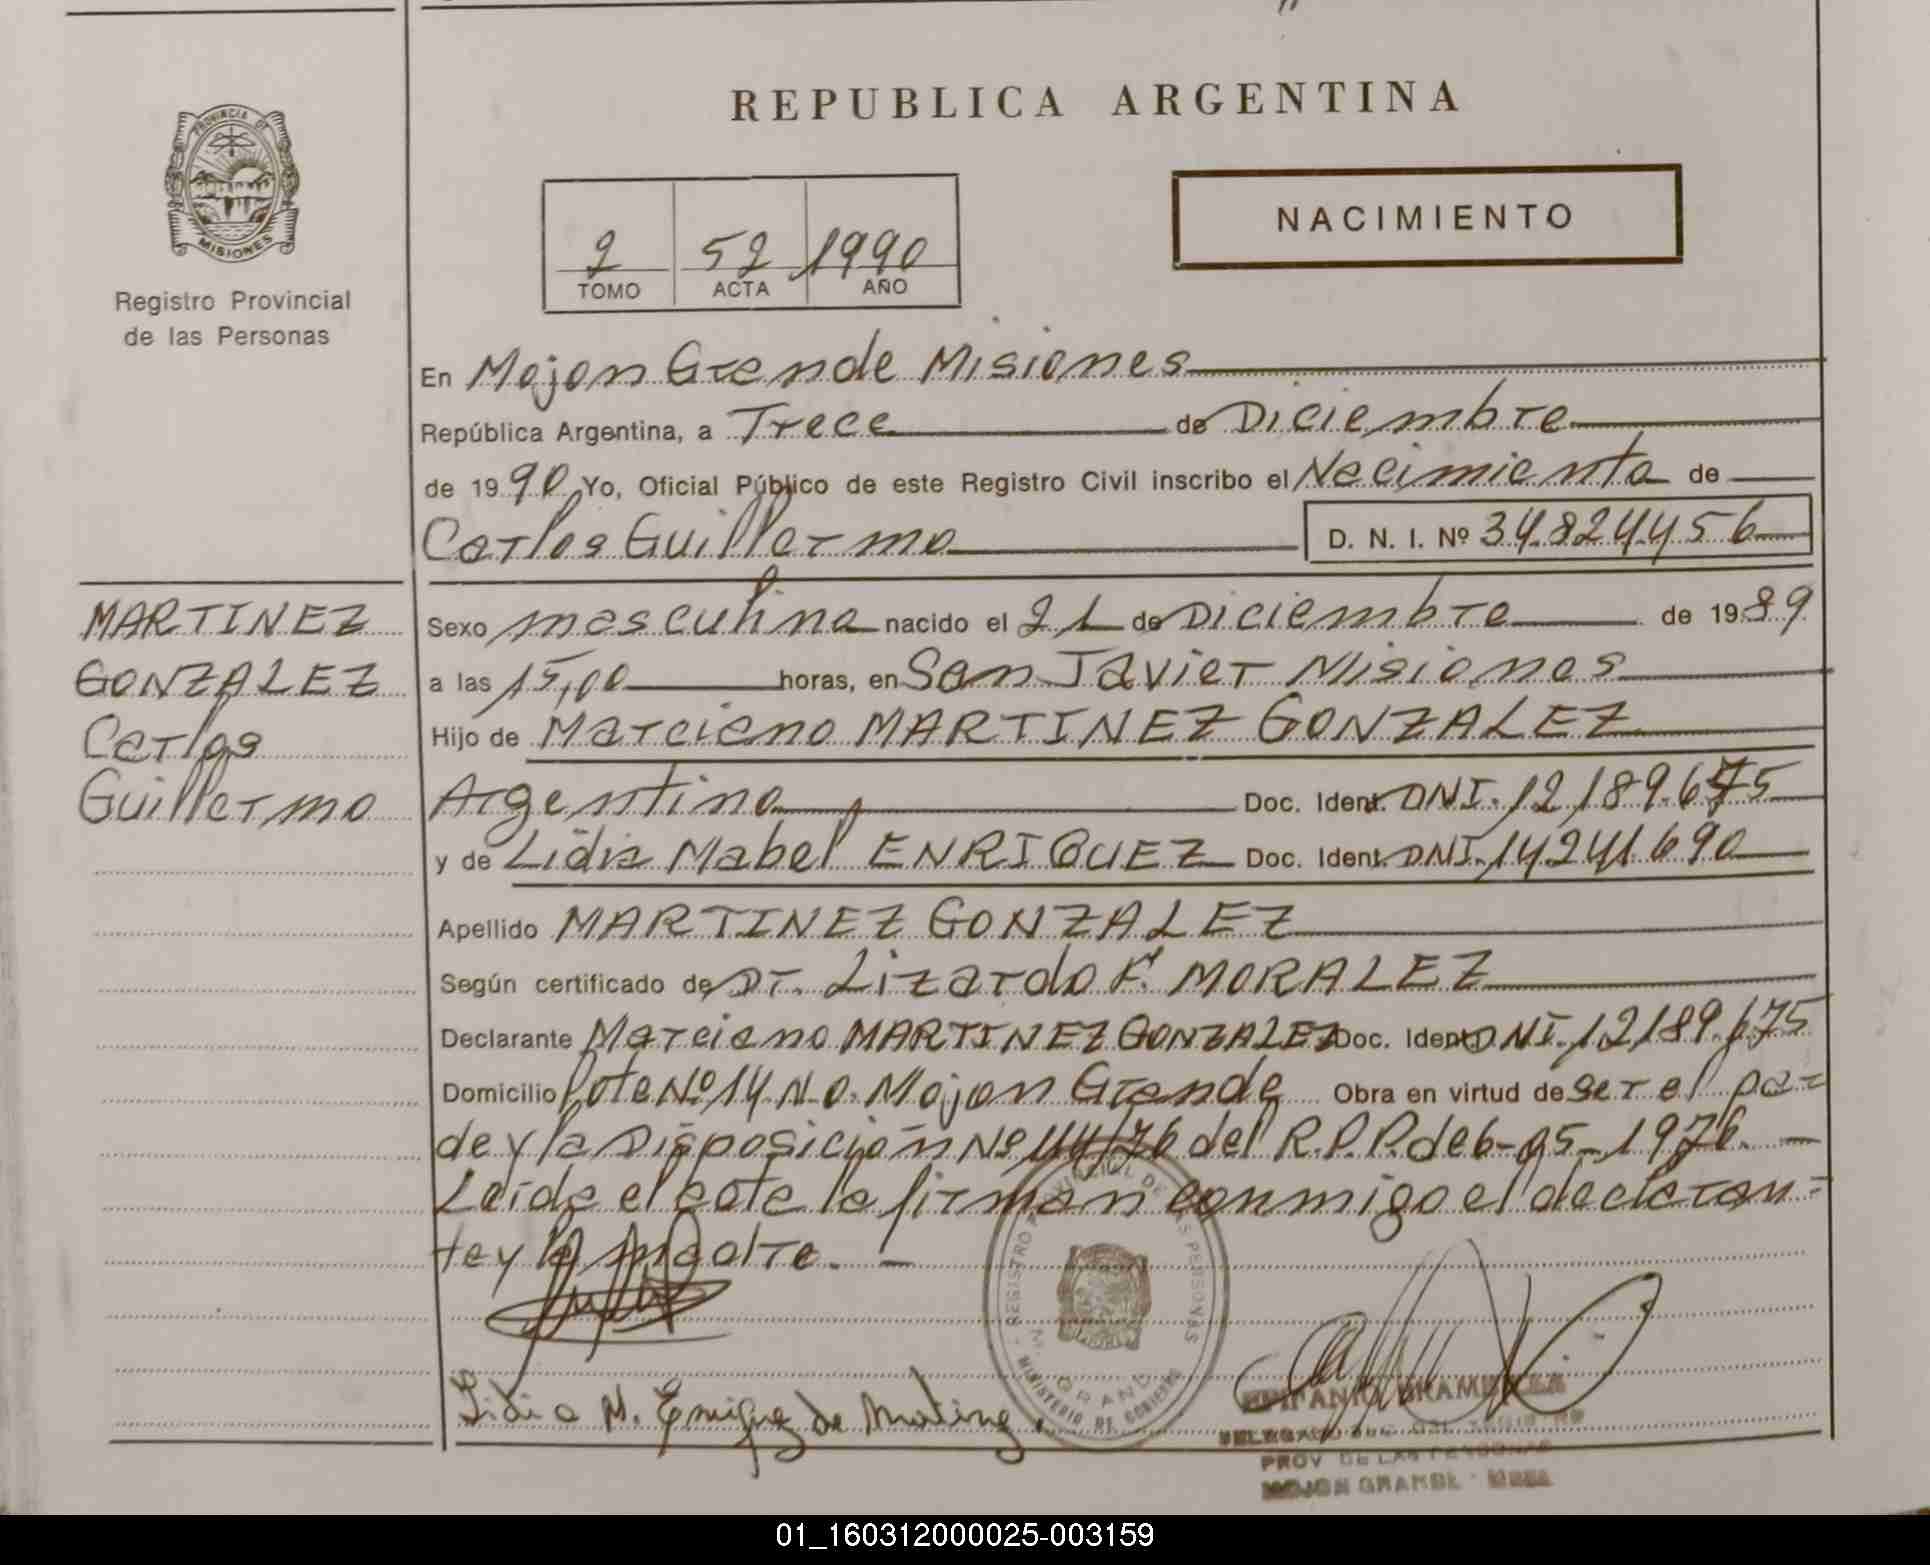 REPUBLICA ARGENTINA
PROVINCIA DE
MISIONES
Registro Provincial
de las Personas
2 52 1990
TOMO ACTA AÑO
NACIMIENTO
En Mojon Grande Misiones
República Argentina, a Trece de Diciembre
de 1990 Yo, Oficial Público de este Registro Civil inscribo el Nacimiento de
Carlos Guillermo D. N. I. Nº 34.824.456
MARTINEZ
GONZALEZ
Carlos
Guillermo
Sexo masculino nacido el 21 de Diciembre de 1989
a las 15,00 horas, en San Javier Misiones
Hijo de Marciano MARTINEZ GONZALEZ
Argentino Doc. Ident. DNI. 12.189.675
y de Lidia Mabel ENRIQUEZ Doc. Ident. DNI. 14.241.690
Apellido MARTINEZ GONZALEZ
Según certificado de Dr. Lizardo F. MORALEZ
Declarante Marciano MARTINEZ GONZALEZ Doc. Ident. DNI. 12.189.675
Domicilio Lote Nº 14 N.O. Mojon Grande Obra en virtud de ser el pa-
dre y la Disposición Nº 114/76 del R.P.P. de 6-05-1976. —
Leída el acta la firman conmigo el declaran-
te y la madre. —
REGISTRO PROVINCIAL DE LAS PERSONAS
MINISTERIO DE GOBIERNO
Lidia M. Enriquez de Martinez.
PROV DE LAS PERSONAS
MOJON GRANDE - MNES
01_160312000025-003159